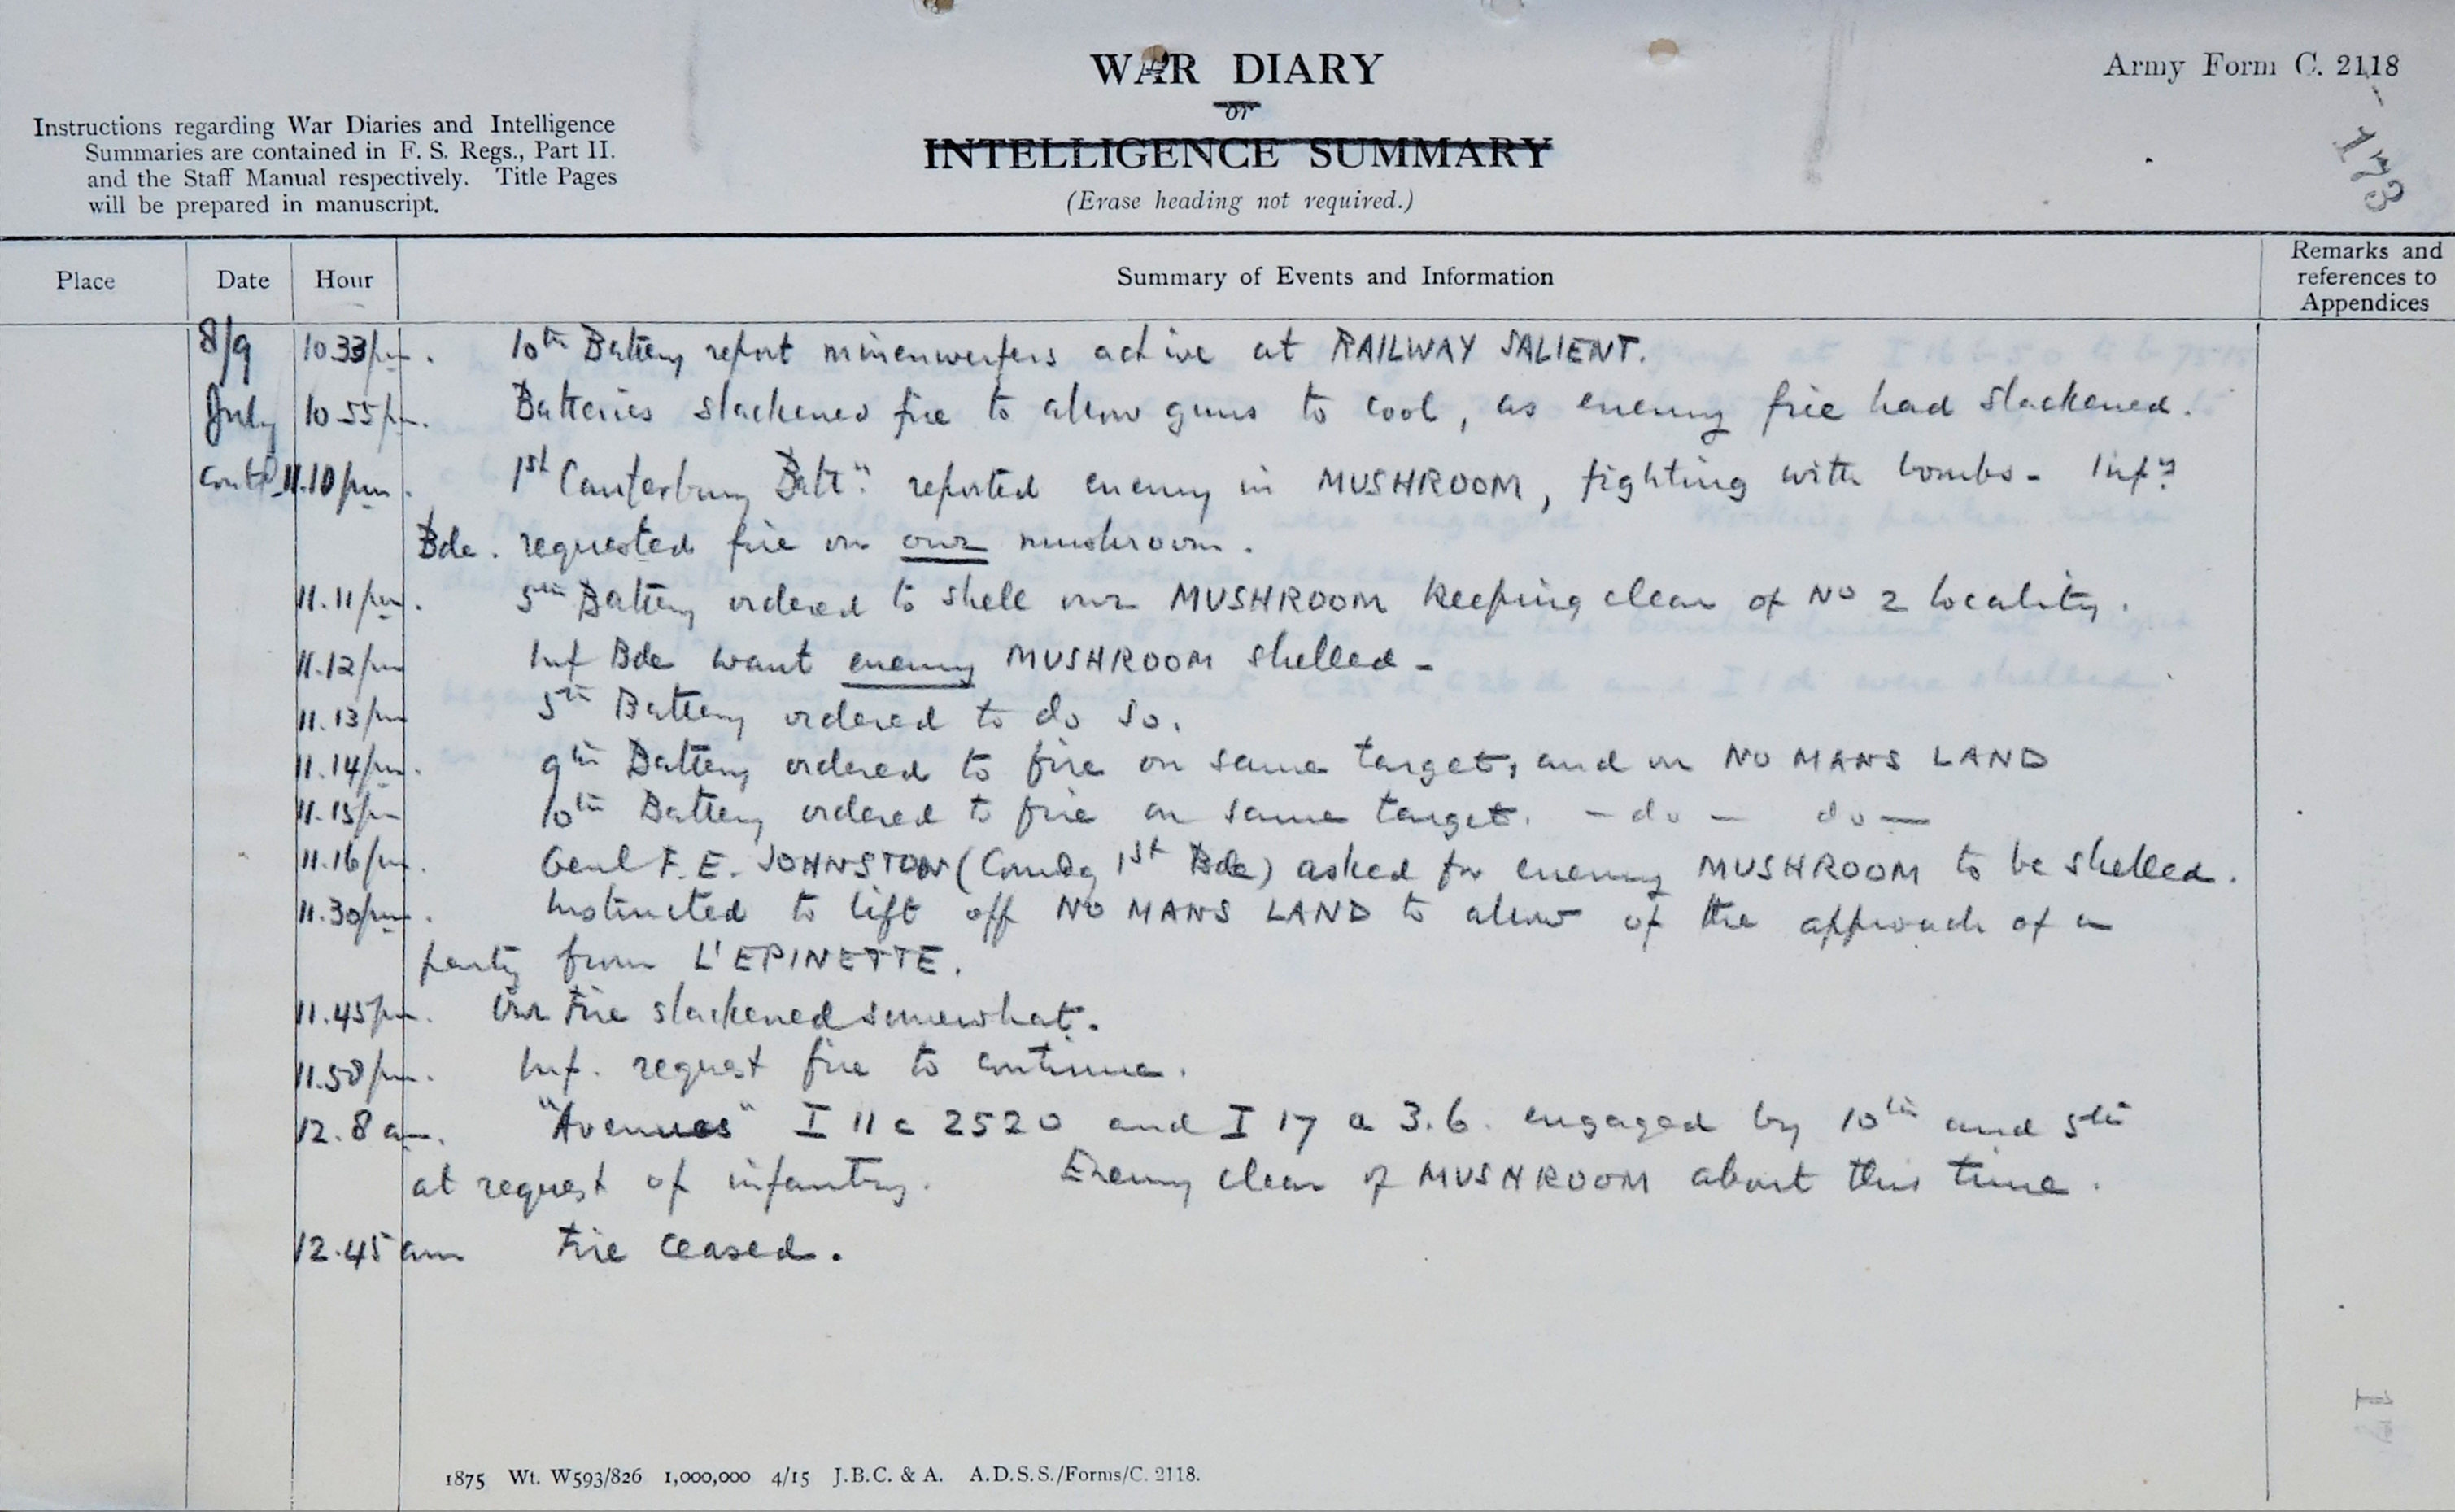 WAR DIARY
or
INTELLIGENCE SUMMARY
(Erase heading not required.)
Army Form C. 2118
173
Instructions regarding War Diaries and Intelligence
Summaries are contained in F. S. Regs., Part II.
and the Staff Manual respectively. Title Pages
will be prepared in manuscript.
Place Date Hour Summary of Events and Information Remarks and references to Appendices
8/9 10 33pm. 10th Battery report minenwerfers active at RAILWAY SALIENT.
July 10 55pm. Batteries slackened fire to allow guns to cool, as enemy fire had slackened.
contd. 11.10pm. 1st Canterbury Battn. reported enemy in MUSHROOM, fighting with bombs - Infy
Bde. requested fire on our mushroom.
11.11pm. 5th Battery ordered to shell our MUSHROOM keeping clear of No 2 locality.
11.12pm Inf Bde want enemy MUSHROOM shelled -
11.13pm 5th Battery ordered to do so.
11.14pm. 9th Battery ordered to fire on same target, and on NO MANS LAND
11.15pm 10th Battery ordered to fire on same target. - do - do -
11.16pm. Genl F. E. JOHNSTON (Comdg 1st Bde) asked for enemy MUSHROOM to be shelled.
11.30pm. Instructed to lift off NO MANS LAND to allow of the approach of a
party from L'EPINETTE.
11.45pm. Our Fire slackened somewhat.
11.50pm. Inf. request fire to continue.
12.8am. "Avenues" I 11 c 2520 and I 17 a 3.6. engaged by 10th and 5th
at request of infantry. Enemy clear of MUSHROOM about this time.
12.45am Fire ceased.
1875 Wt. W593/826 1,000,000 4/15 J.B.C. & A. A.D.S.S./Forms/C. 2118.